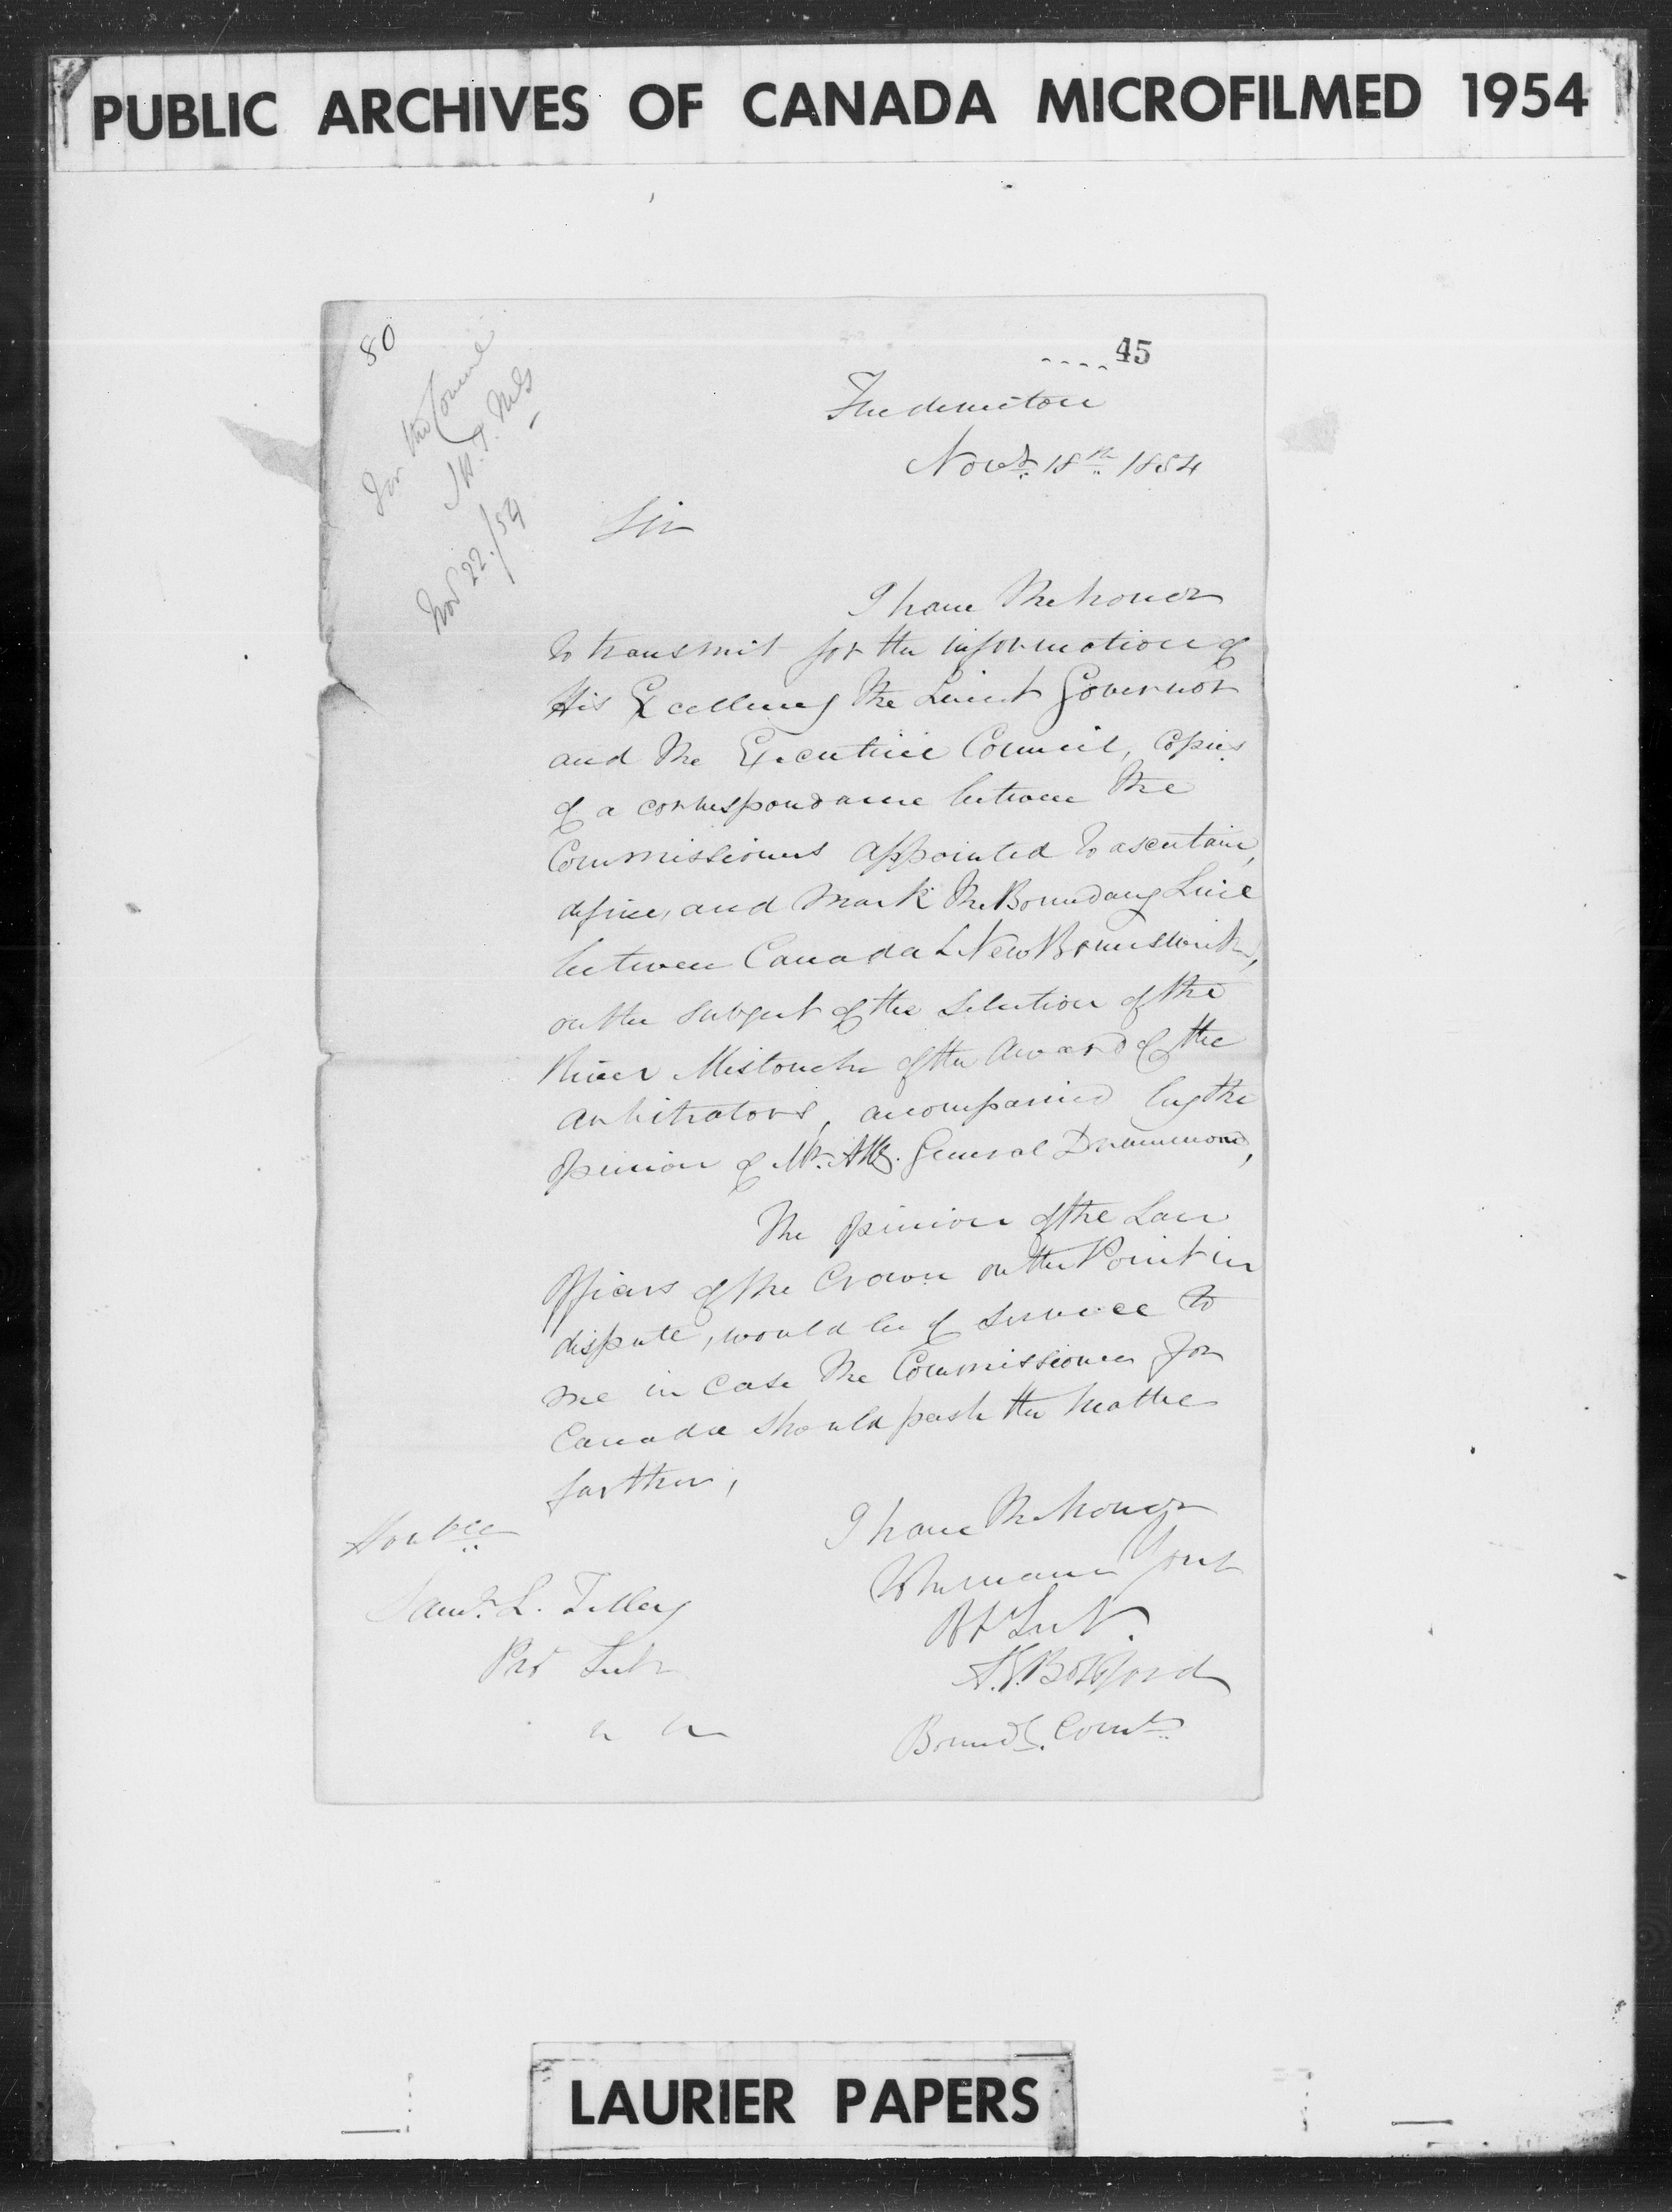 PUBLIC ARCHIVES OF CANADA MICROFILMED 1954
80
45
For the Council
Nov 22./54
Fredericton
Novr. 18th 1854
Sir
I have the honor
to transmit for the information of
His Excellency the Lieut Governor
and the Executive Council, Copies
of a correspondance between the
Commissioners appointed to ascertain,
define, and mark the Boundary Line
between Canada & New Brunswick,
on the subject of the selection of the
River Mistouche of the Award of the
arbitrators, accompanied by the
opinion of Mr. Atty. General Drummond,
The opinion of the Law
Officers of the Crown on the Point in
dispute, would be of service to
me in case the Commissioner for
Canada should push the matter
further,
I have the honor
to remain Your
Ob Sert.
A. E. Botsford
Boundy. Comr.
Honble
Saml. L. Tilley
Pro Secr